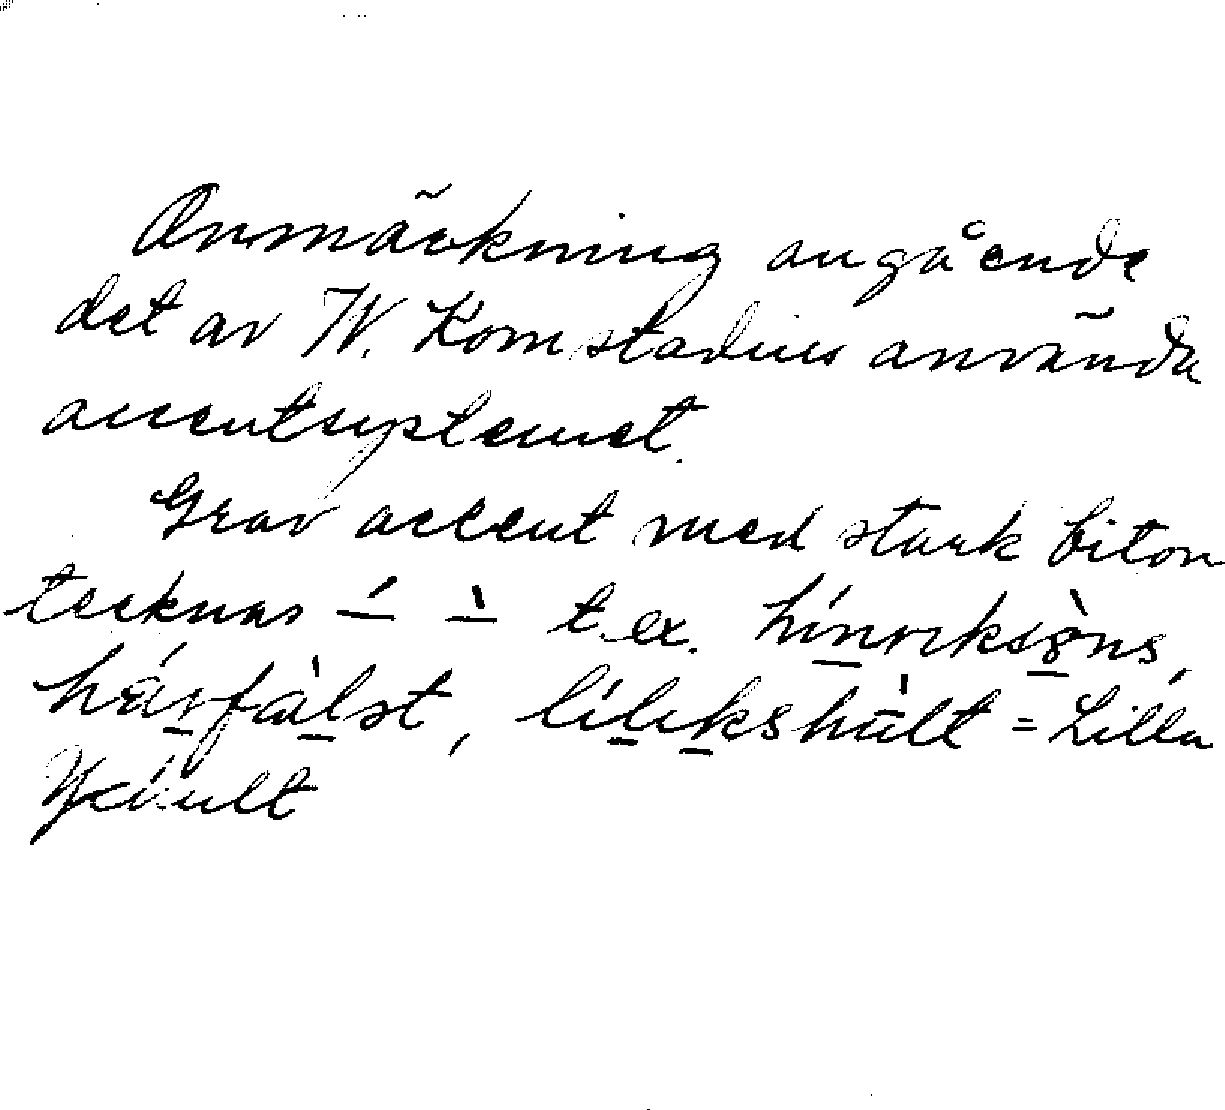 Anmärkning angående
det av W. Komstadius använda
accentsystemet.
Grav accent med stark biton
tecknas –́ –̀ t.ex. hín̲riksò̲ns,
hár̲fàl̲st, líl̲ik̲shū̀lt = Lilla